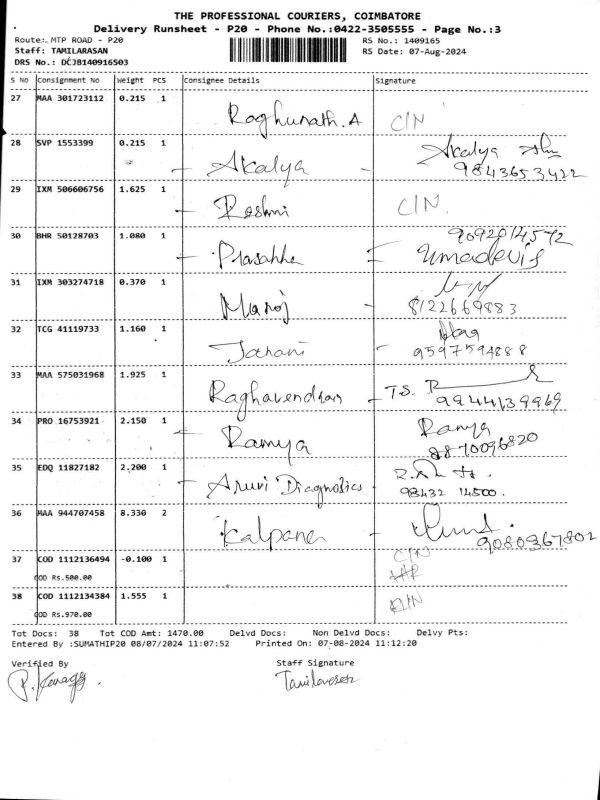 THE PROFESSIONAL COURIERS, COIMBATORE
Delivery Runsheet - P20 - Phone No.:0422-3505555 - Page No.:3
Route: MTP ROAD - P20 RS No.: 1409165
Staff: TAMILARASAN RS Date: 07-Aug-2024
DRS No.: DCJB140916503
S No Consignment No Weight PCS Consignee Details Signature
27 MAA 301723112 0.215 1 Raghunath.A C/N
28 SVP 1553399 0.215 1 Akalya Akalya
9843653422
29 IXM 506606756 1.625 1 Reshmi C/N.
30 BHR 50128703 1.080 1 Prasahha 9092014572
Umadevi
31 IXM 303274718 0.370 1 Manoj 8122669883
32 TCG 41119733 1.160 1 Tarani 9597594888
33 MAA 575031968 1.925 1 Raghavendran T.S. R
9944139969
34 PRO 16753921 2.150 1 Ramya Ramya
8870096820
35 EDQ 11827182 2.200 1 Aruvi Diagnostics
98432 14500.
36 MAA 944707458 8.330 2 Kalpana 9080367802
37 COD 1112136494 -0.100 1 C/N
COD Rs.500.00
38 COD 1112134384 1.555 1
COD Rs.970.00
Tot Docs: 38 Tot COD Amt: 1470.00 Delvd Docs: Non Delvd Docs: Delvy Pts:
Entered By :SUMATHIP20 08/07/2024 11:07:52 Printed On: 07-08-2024 11:12:20
Verified By Staff Signature
P. Kanaga Tamilarasan